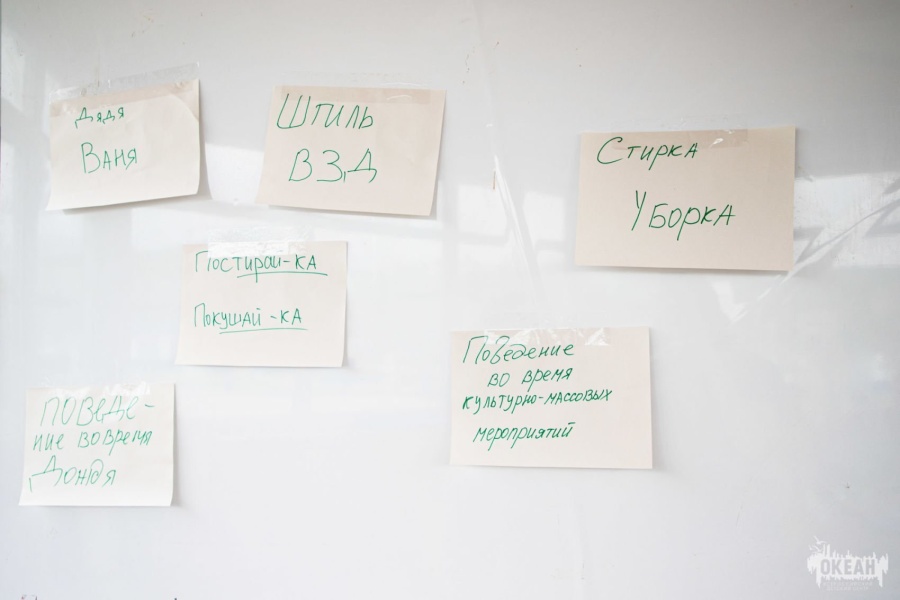 Дядя
Ваня
Штиль
ВЗД
Стирка
Уборка
Постирай-ка
Покушай-ка
Поведение
во время
культурно-массовых
мероприятий
Поведе-
ние во время
Дождя
ОКЕАН